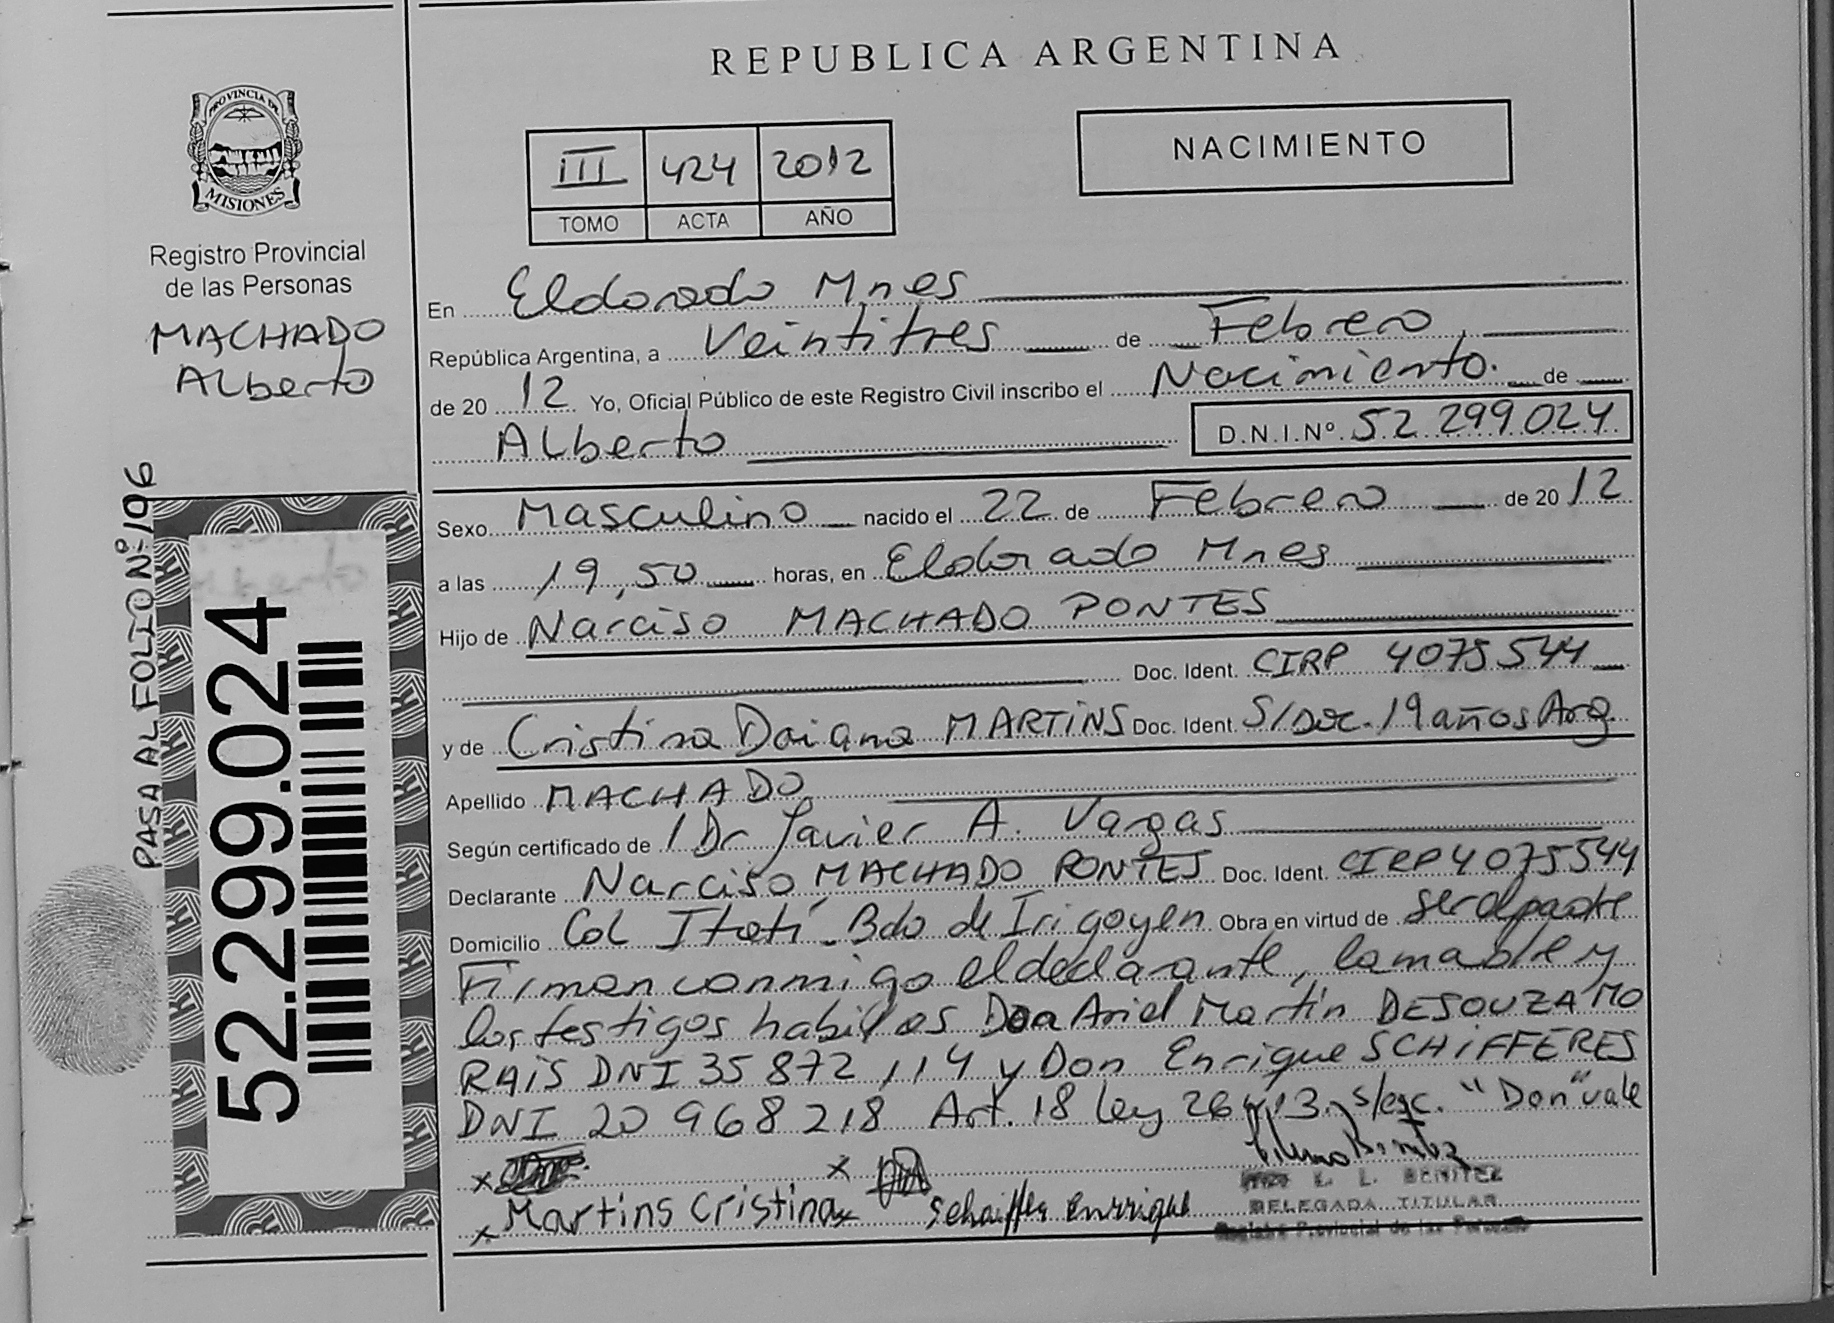 REPUBLICA ARGENTINA
PROVINCIA DE
MISIONES
Registro Provincial
de las Personas
MACHADO
Alberto
PASA AL FOLIO Nº 106
52.299.024
III 424 2012
TOMO ACTA AÑO
NACIMIENTO
En Eldorado Mnes
República Argentina, a Veintitres de Febrero
de 20 12 Yo, Oficial Público de este Registro Civil inscribo el Nacimiento. de
Alberto D.N.I.Nº. 52.299.024
Sexo Masculino nacido el 22 de Febrero de 20 12
a las 19,50 horas, en Eldorado Mnes
Hijo de Narciso MACHADO PONTES
Doc. Ident. CIRP 4075544
y de Cristina Daiana MARTINS Doc. Ident. S/Doc. 19 años Arg
Apellido MACHADO
Según certificado de Dr Javier A. Vargas
Declarante Narciso MACHADO PONTES Doc. Ident. CIRP 4075544
Domicilio Col Itatí. Bdo de Irigoyen Obra en virtud de ser el padre
Firman conmigo el declarante, la madre y
los testigos habiles Ariel Martín DESOUZA MO
RAIS DNI 35 872 114 y Don Enrique SCHIFFERES
DNI 20 968 218 Art. 18 Ley 26 413. s/esc. "Don" vale
Martins Cristina
Enrrique
L. L. BENITEZ
DELEGADA TITULAR
Registro Provincial de las Personas